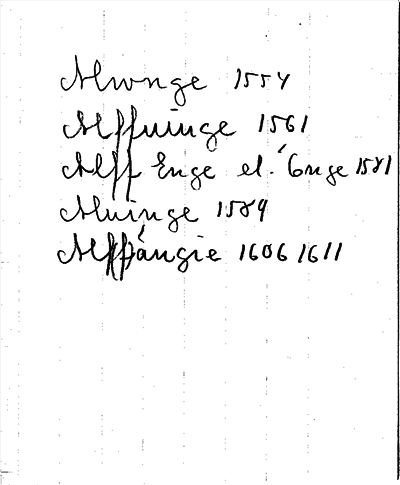 Alwnge 1554
Alffuinge 1561
Alff Enge el. Énge 1581
Aluinge 1589
Alffángie 1606 1611